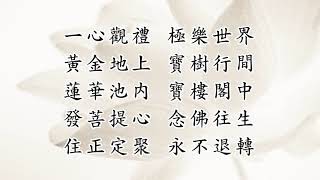 一心觀禮 極樂世界
黃金地上 寶樹行間
蓮華池內 寶樓閣中
發菩提心 念佛往生
住正定聚 永不退轉